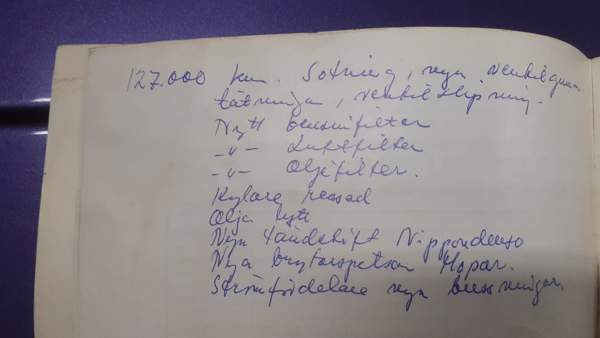 127.000 km. Sotning, nya ventilgummi
tätningar, ventilslipning.
Nytt bensinfilter
-"- Luftfilter
-"- Oljefilter.
Kylare rensad
Olja bytt
Nya tändstift Nippondenso
Nya brytarspetsar Mopar.
Strömfördelare nya bussningar.